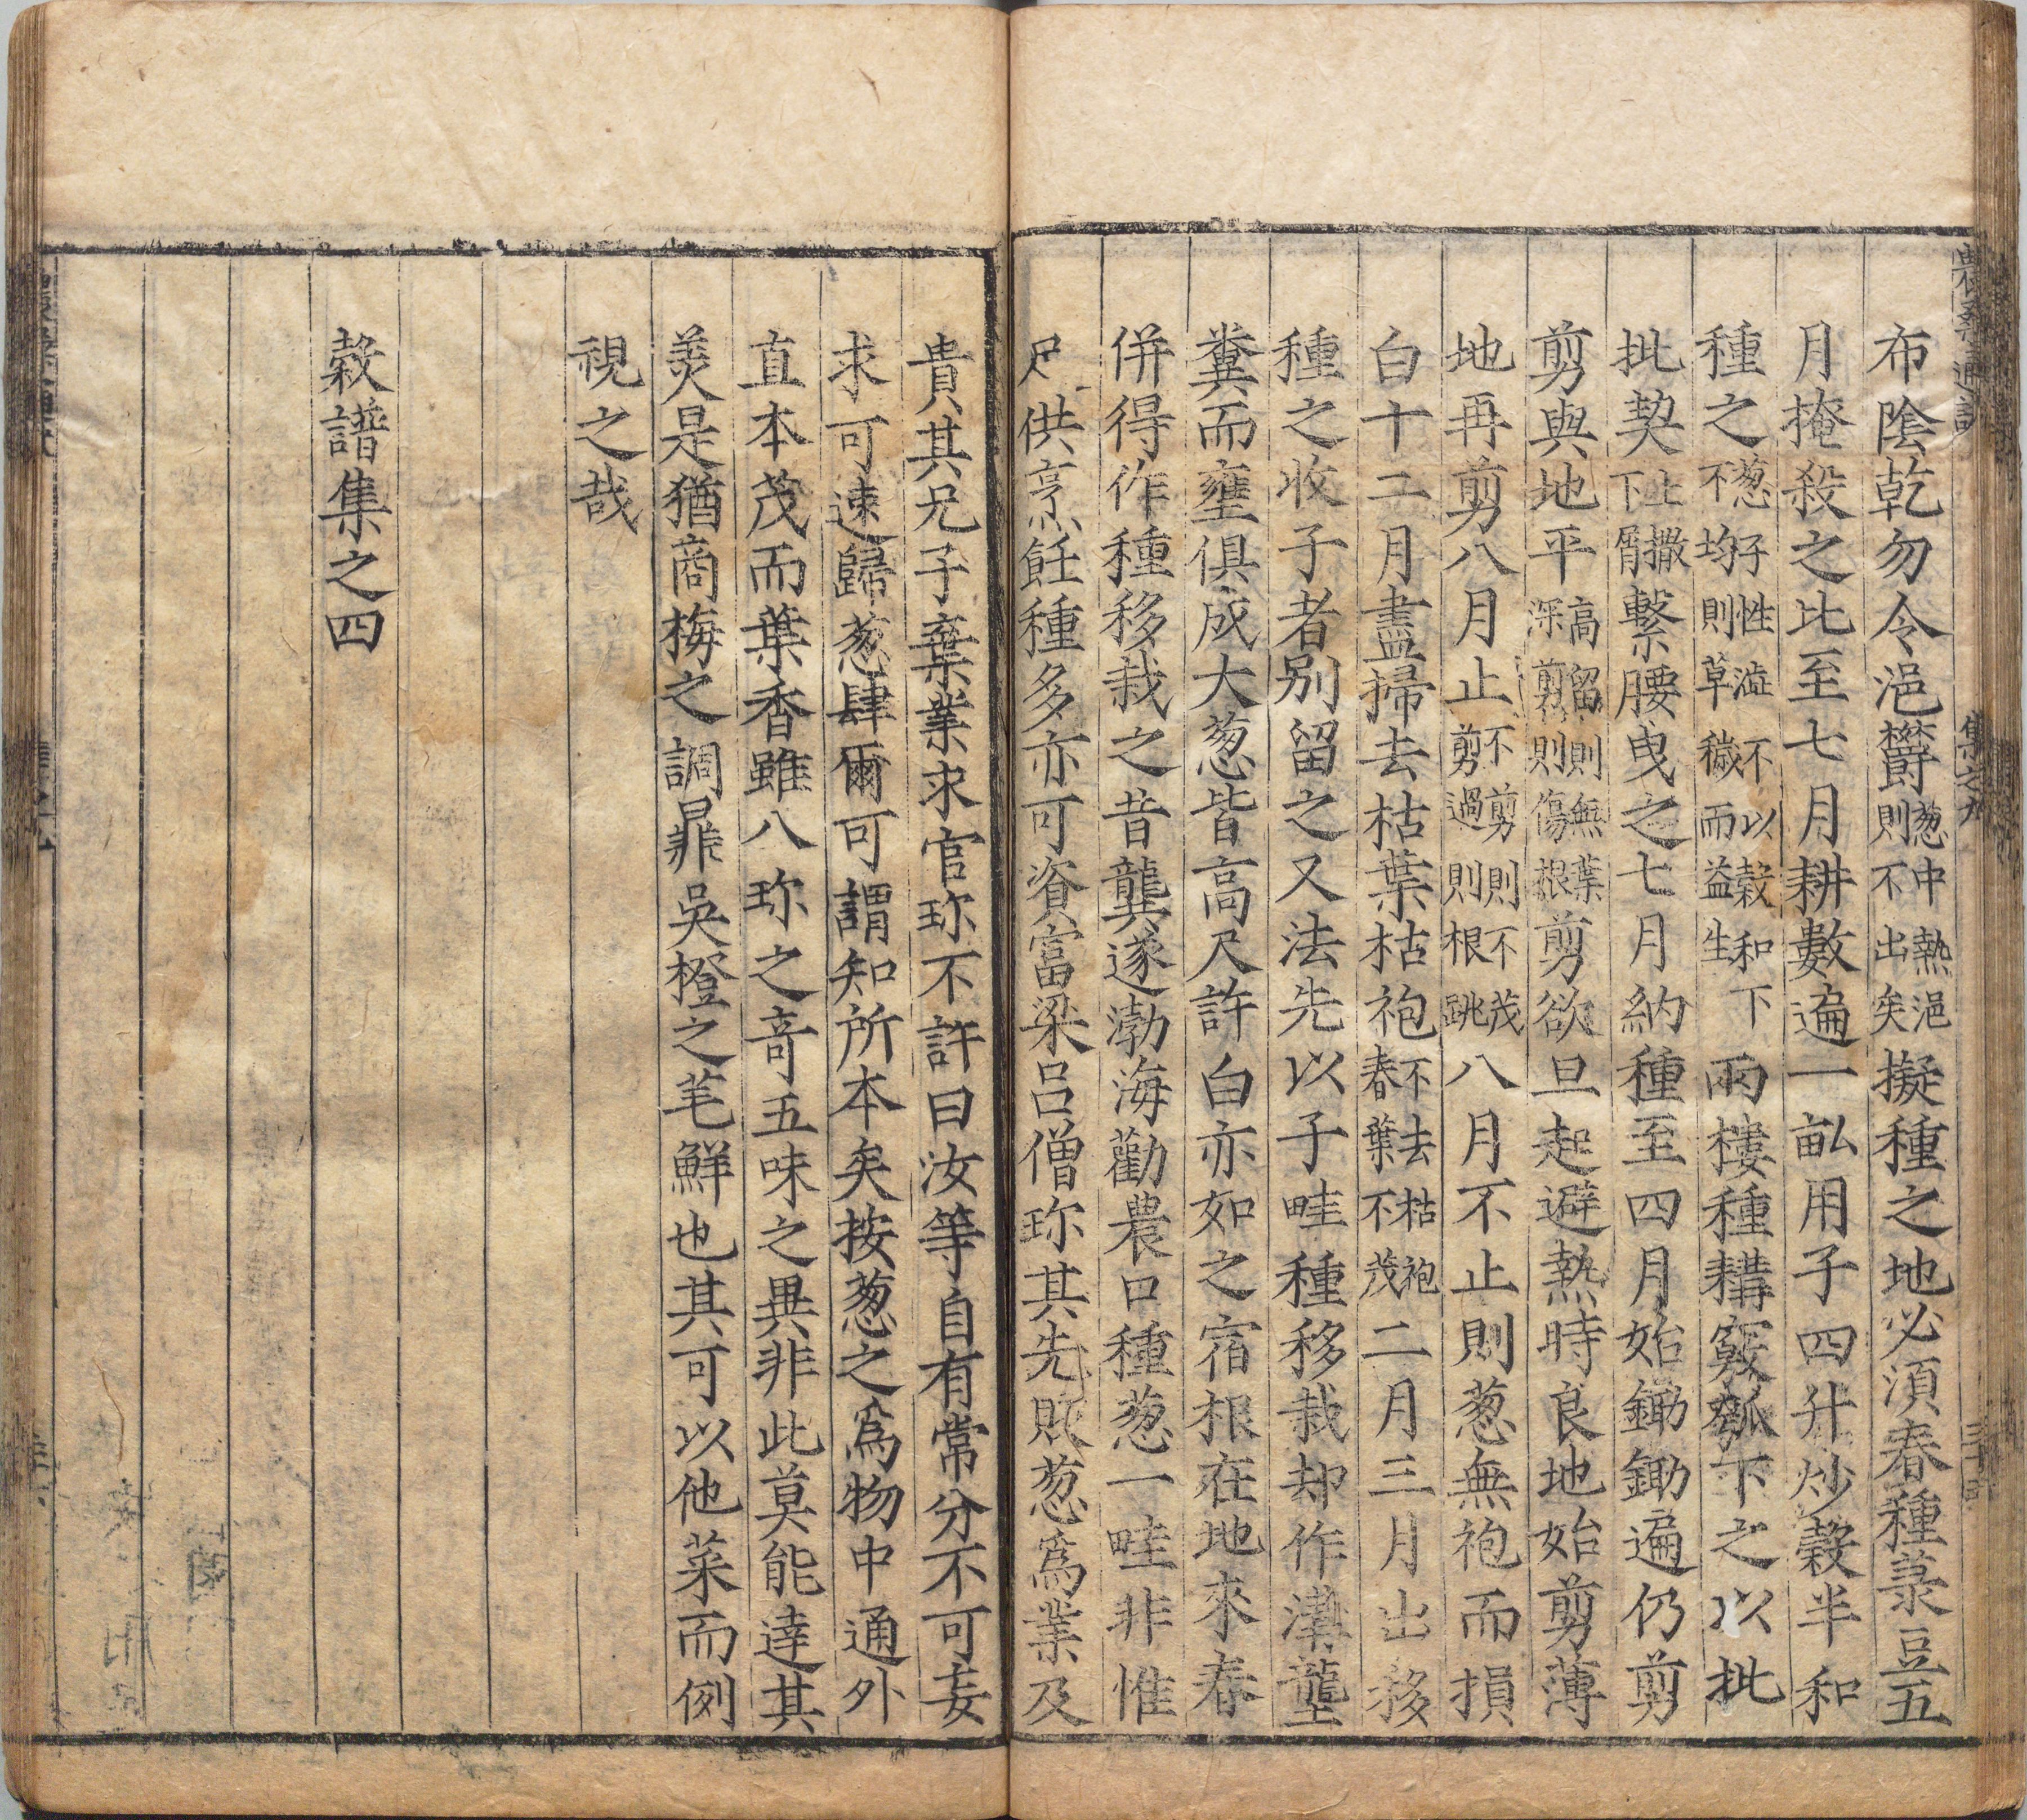 布陰乾勿令浥鬱葱中熱浥則不出矣擬種之地必湏春種菉豆五
月掩殺之比至七月耕數遍一畆用子四升炒穀半和
種之葱子性澁不以穀和下不均則草穢而益生兩樓種耩竅瓠下之以批
批契上撒下屑繫腰曳之七月納種至四月始鋤鋤遍仍剪
剪與地平高留則無葉深剪則傷根剪欲旦起避熱時良地始剪薄
地再剪八月止不剪則不茂剪過則根跳八月不止則葱無袍而損
白十二月盡掃去枯葉枯袍不去枯袍春葉不茂二月三月出移
種之收子者別留之又法先以子畦種移栽却作溝壟
糞而壅俱成大葱皆高尺許白亦如之宿根在地來春
併得作種移栽之昔龔遂渤海勸農口種葱一畦非惟
供烹飪種多亦可資富梁吕僧珎其先敗葱爲業及
貴其兄子棄業求官珎不許曰汝等自有常分不可妄
求可速歸葱肆爾可謂知所本矣按葱之爲物中通外
直本茂而葉香雖八珎之竒五味之異非此莫能達其
羙是猶商梅之調鼎吳橙之芼鮮也其可以他菜而例
視之哉
穀譜集之四
集之九